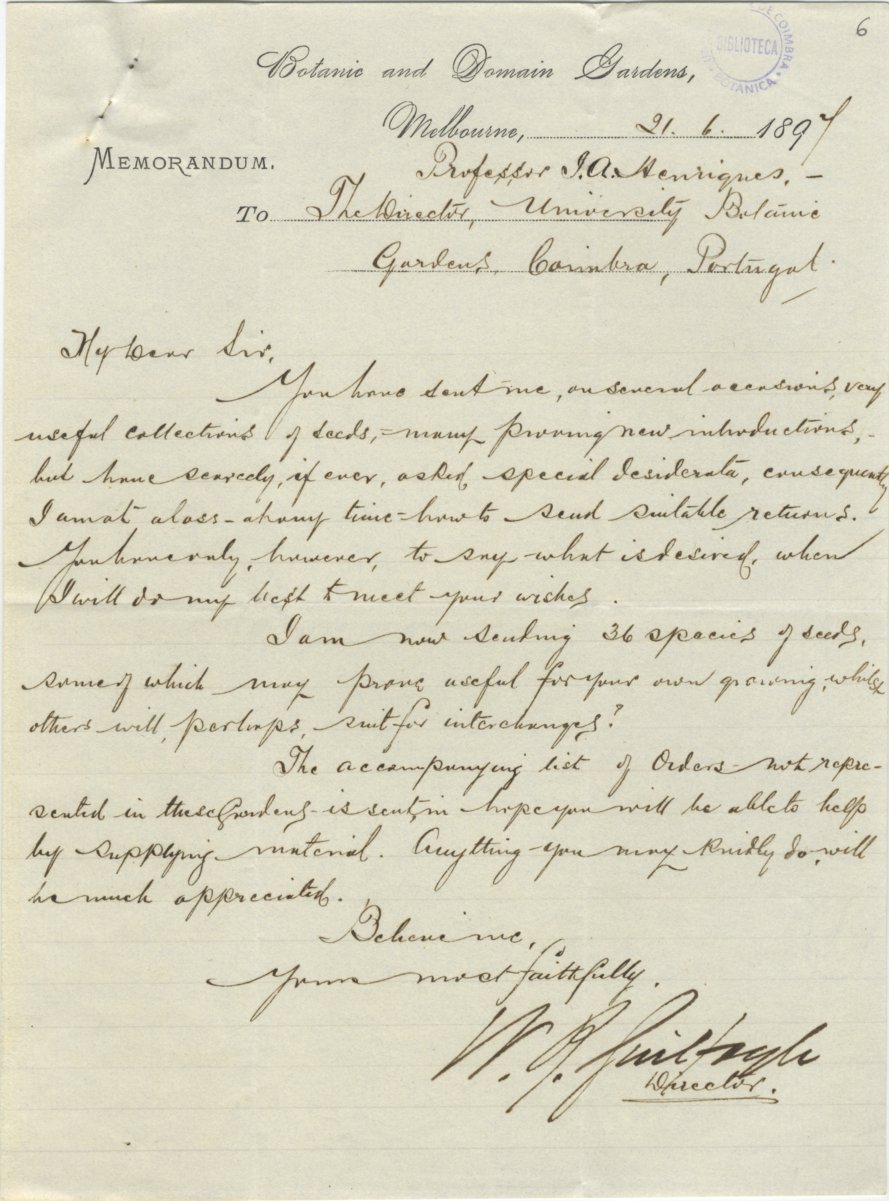 6
BIBLIOTECA
DE COIMBRA
BOTANICA
Botanic and Domain Gardens,
Melbourne, 21. 6. 1897
MEMORANDUM.
Professor J. A. Henriques. –
To The Director, University Botanic
Gardens, Coimbra, Portugal.
My dear Sir,
You have sent me, on several occasions, very
useful collections of seeds, – many proving new introductions, –
but have scarcely, if ever, asked special desiderata, consequently
I am at a loss – at any time – how to send suitable returns.
You have only, however, to say what is desired, when
I will do my best to meet your wishes.
I am now sending 36 species of seeds,
some of which may prove useful for your own growing, whilst
others will, perhaps, suit for interchanges?
The accompanying list of Orders – not repre-
sented in these Gardens – is sent, in hope you will be able to help
by supplying material. Anything you may kindly do, will
be much appreciated.
Believe me,
Yours most faithfully.
W. R. Guilfoyle
Director.